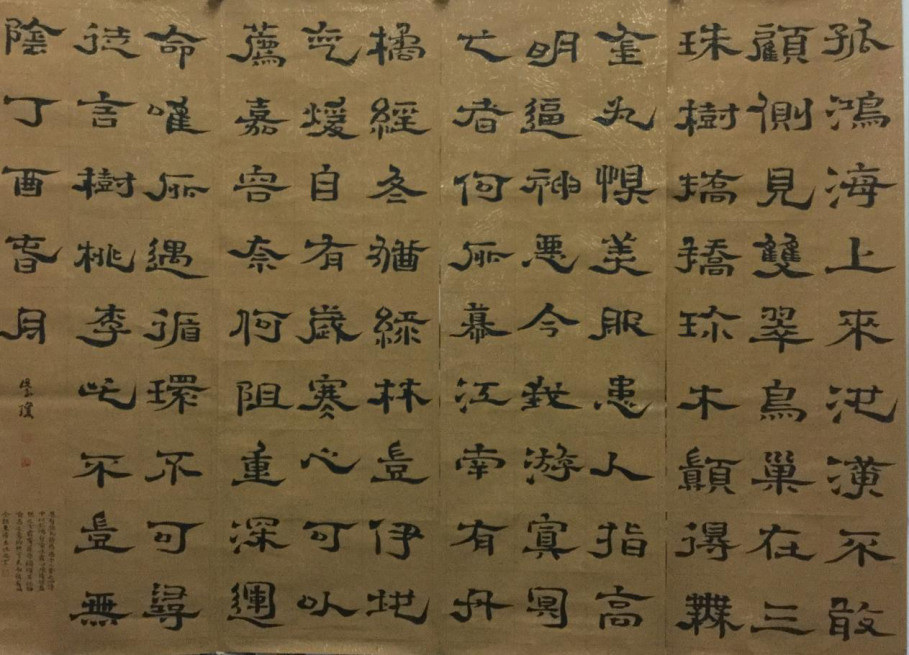 孤鴻海上來池潢不敢
顧側見雙翠鳥巢在三
珠樹矯矯珍木顛得無
金丸懼美服患人指高
明逼神惡今我游冥冥
弋者何所慕江南有丹
橘經冬猶綠林豈伊地
气煖自有歲寒心可以
薦嘉客奈何阻重深運
命唯所遇循環不可尋
徒言樹桃李此木豈無
陰丁酉春月